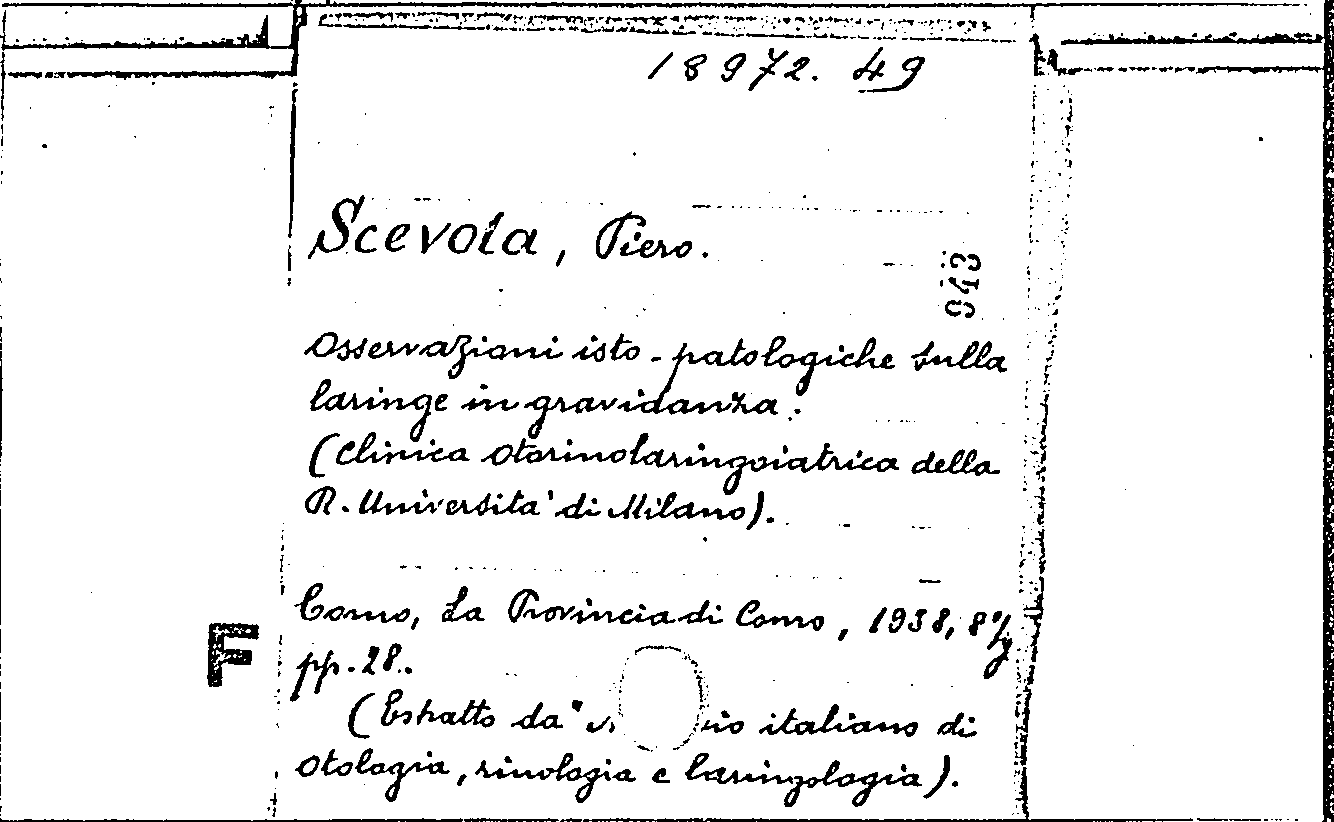 18972. 49
Scevola, Piero.
943
Osservazioni isto-patologiche sulla
laringe in gravidanza.
(Clinica Otorinolaringoiatrica della
R. Università di Milano).
Como, La Provincia di Como, 1938, 8º/g
pp. 28.
F
(Estratto da " italiano di
otologia, rinologia e laringologia).